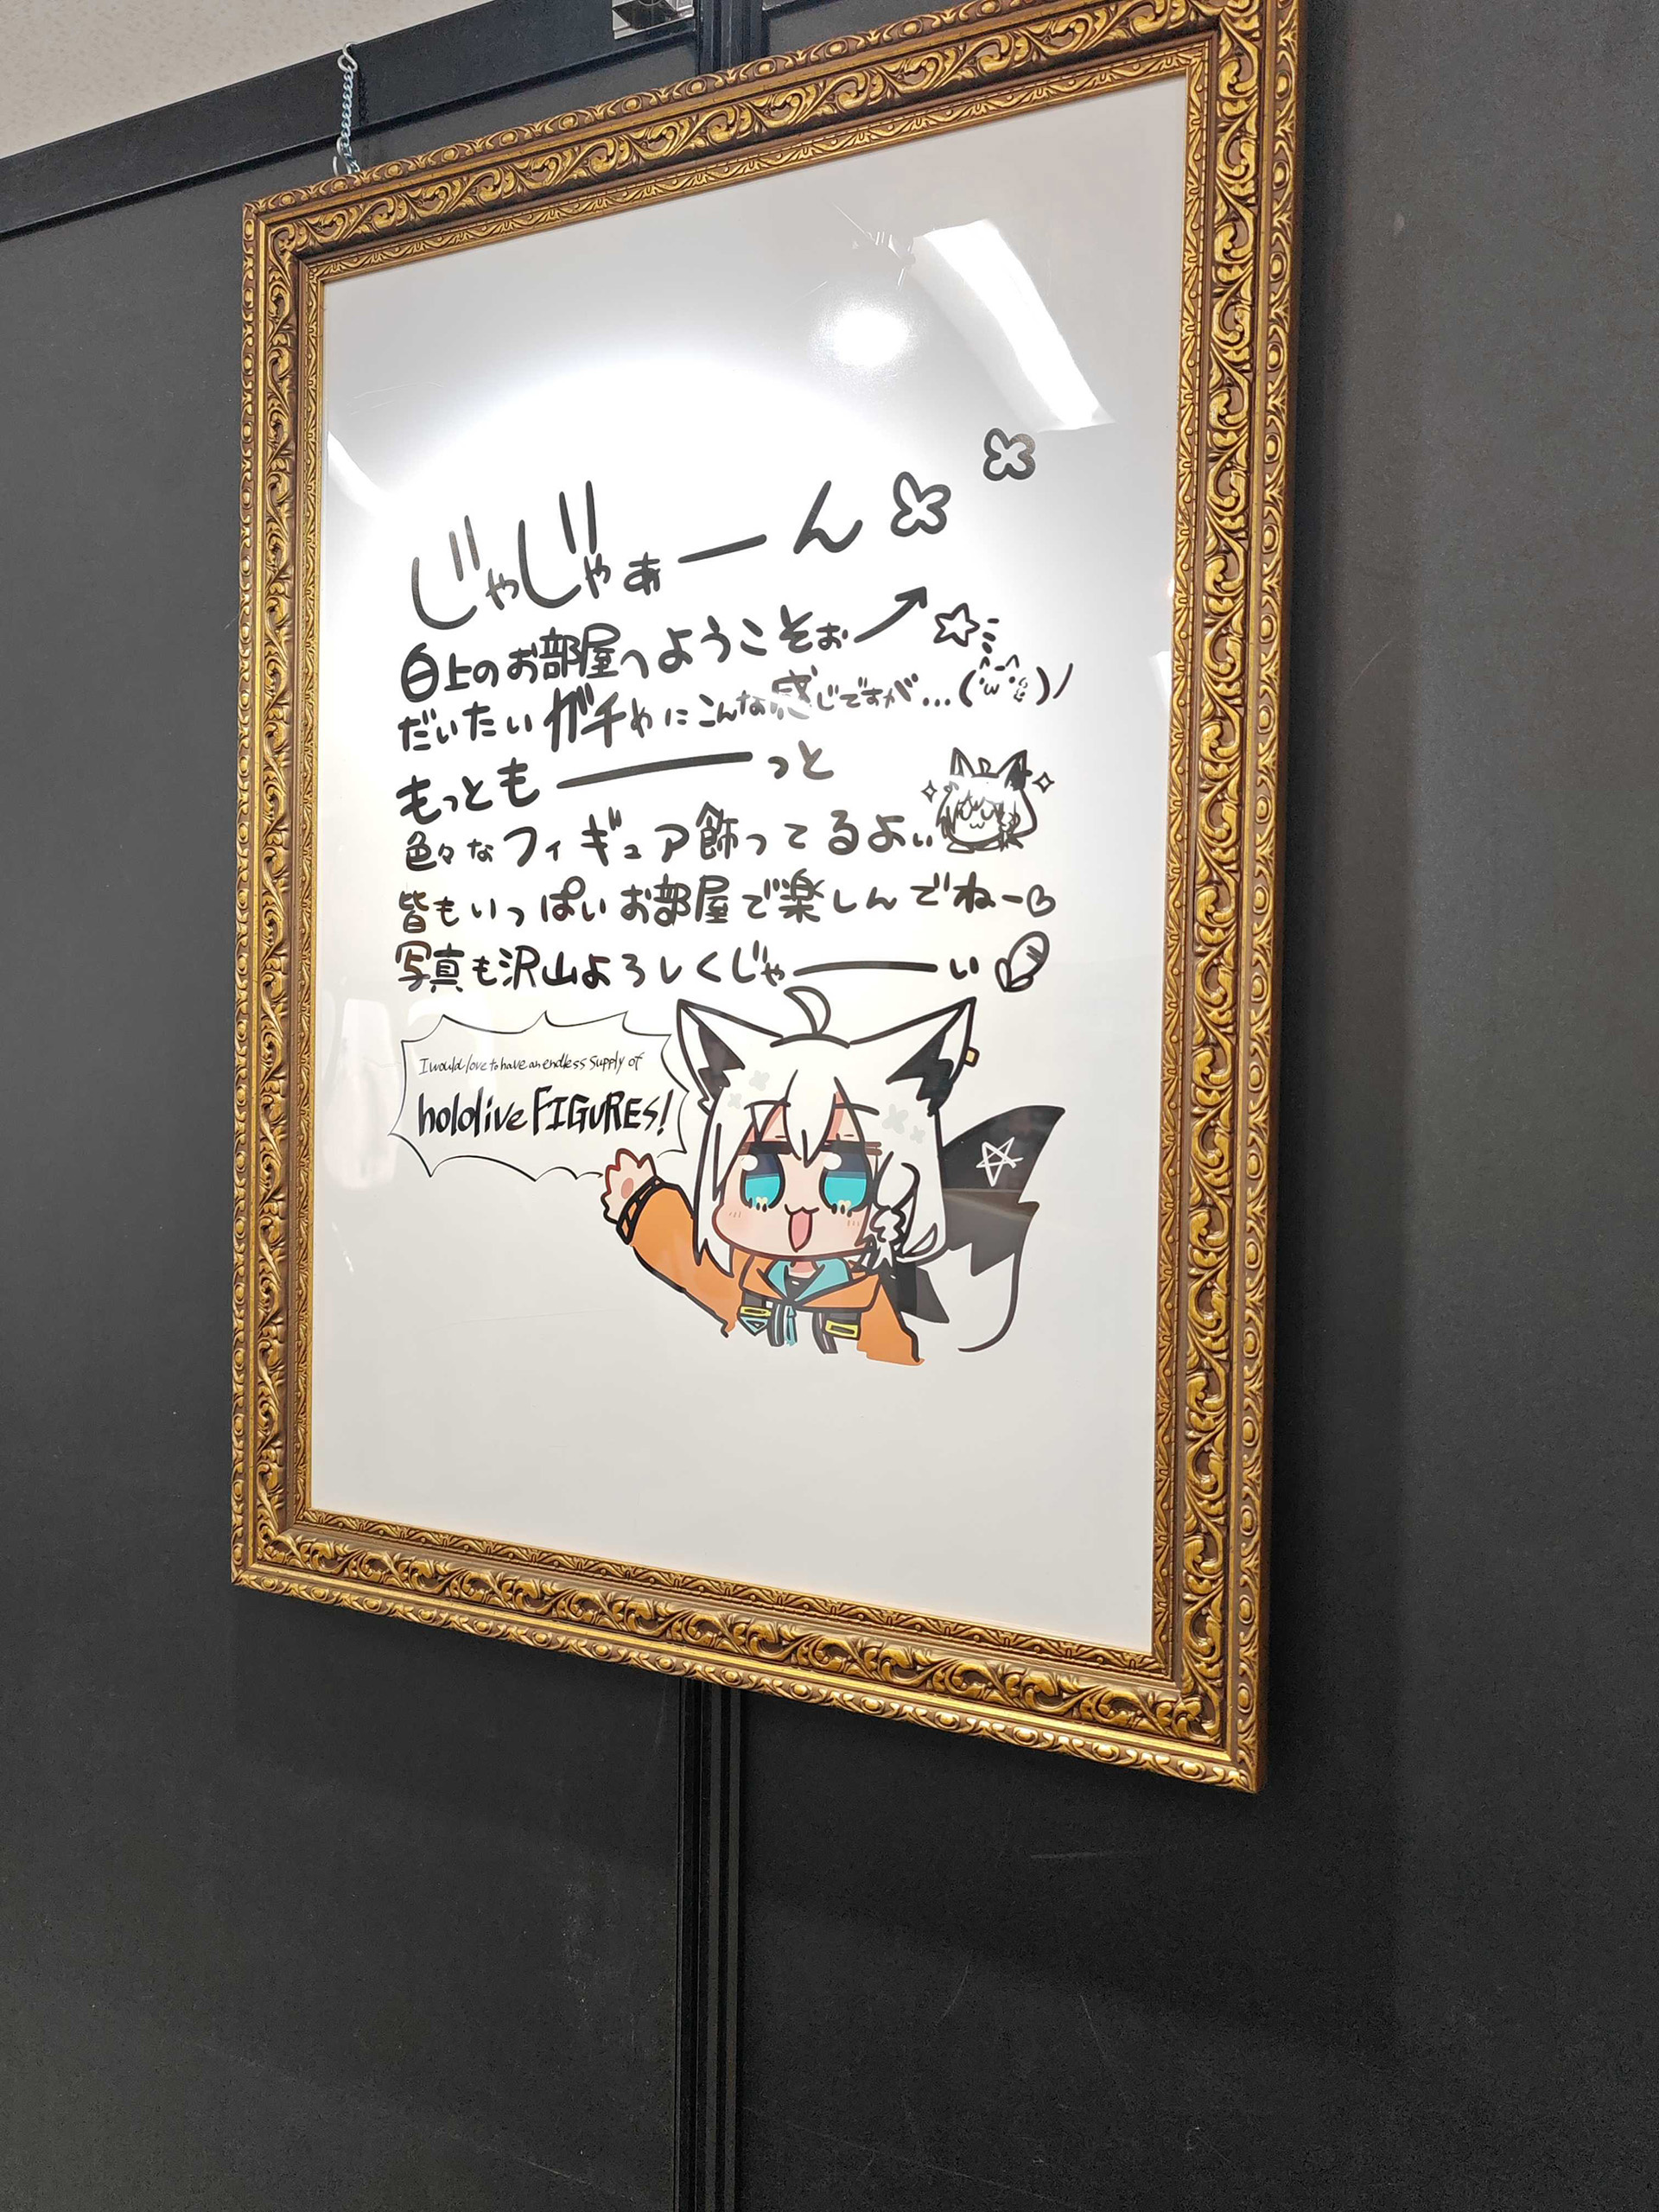 じゃじゃぁーん
白上のお部屋へようこそぉ↗
だいたいガチめにこんな感じですが…(・ω・)ノ
もっともーっと
色々なフィギュア飾ってるよぃ
皆もいっぱいお部屋で楽しんでねー♡
写真も沢山よろしくじゃーい
I would love to have an endless supply of
hololive FIGURES!